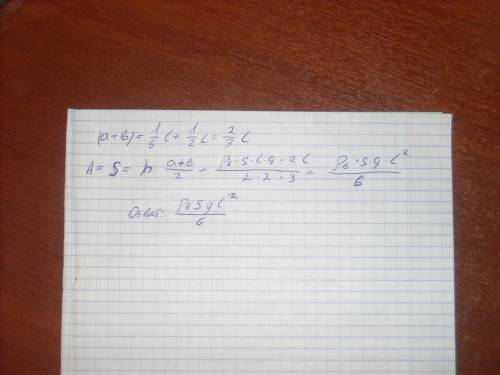 (a+b) = 1/6 l + 1/2 l = 2/3 l
A = S = h · (a+b)/2 = (ρв·s·l·g·2l)/(2·2·3) = (ρв·s·g·l²)/6
Ответ: (ρв s g l²)/6